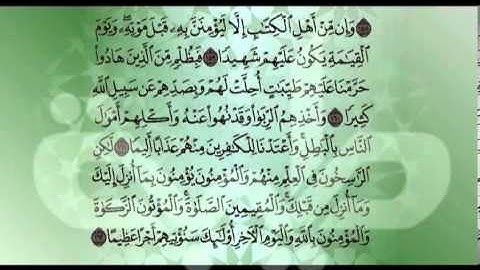 وَإِن مِّنْ أَهْلِ ٱلْكِتَٰبِ إِلَّا لَيُؤْمِنَنَّ بِهِۦ قَبْلَ مَوْتِهِۦ ۖ وَيَوْمَ
ٱلْقِيَٰمَةِ يَكُونُ عَلَيْهِمْ شَهِيدًا ۝ فَبِظُلْمٍ مِّنَ ٱلَّذِينَ هَادُوا۟
حَرَّمْنَا عَلَيْهِمْ طَيِّبَٰتٍ أُحِلَّتْ لَهُمْ وَبِصَدِّهِمْ عَن سَبِيلِ ٱللَّهِ
كَثِيرًا ۝ وَأَخْذِهِمُ ٱلرِّبَوٰا۟ وَقَدْ نُهُوا۟ عَنْهُ وَأَكْلِهِمْ أَمْوَٰلَ
ٱلنَّاسِ بِٱلْبَٰطِلِ ۚ وَأَعْتَدْنَا لِلْكَٰفِرِينَ مِنْهُمْ عَذَابًا أَلِيمًا ۝ لَّٰكِنِ
ٱلرَّٰسِخُونَ فِى ٱلْعِلْمِ مِنْهُمْ وَٱلْمُؤْمِنُونَ يُؤْمِنُونَ بِمَآ أُنزِلَ إِلَيْكَ
وَمَآ أُنزِلَ مِن قَبْلِكَ ۚ وَٱلْمُقِيمِينَ ٱلصَّلَوٰةَ ۚ وَٱلْمُؤْتُونَ ٱلزَّكَوٰةَ
وَٱلْمُؤْمِنُونَ بِٱللَّهِ وَٱلْيَوْمِ ٱلْءَاخِرِ أُو۟لَٰٓئِكَ سَنُؤْتِيهِمْ أَجْرًا عَظِيمًا ۝